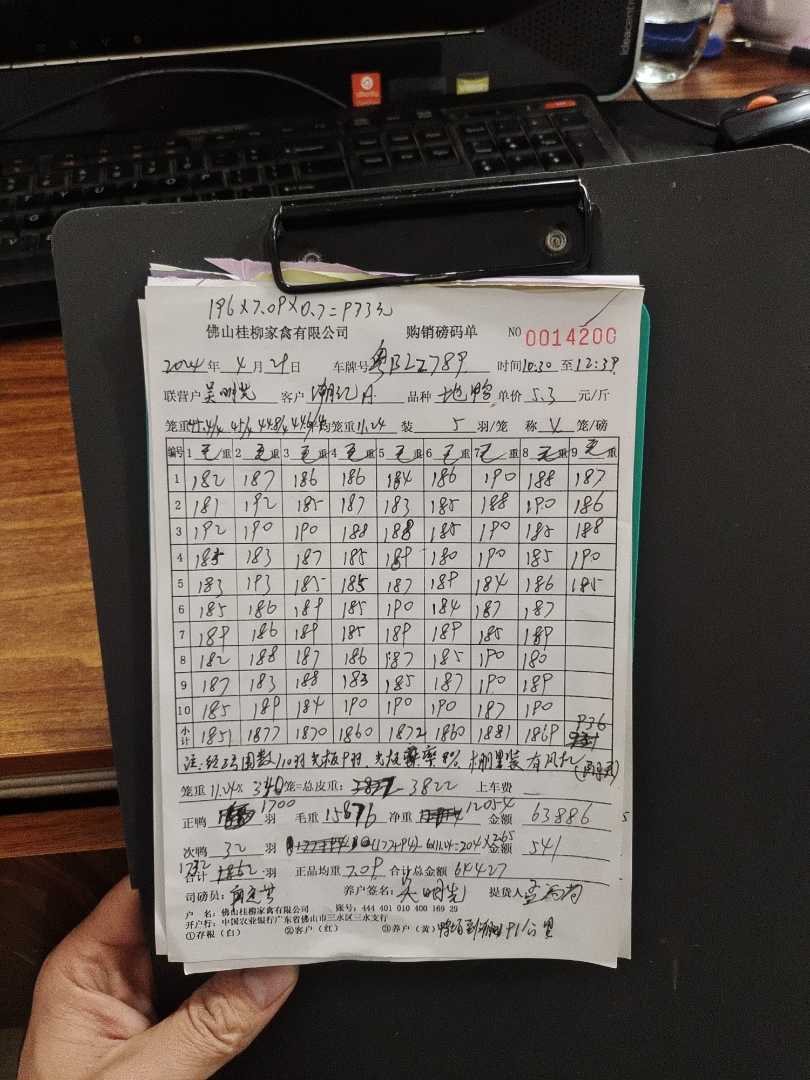 ideacentre
196×7.09×0.7=973元
佛山桂柳家禽有限公司 购销磅码单 NO 0014200
2024年4月29日 车牌号粤BLZ789 时间10:30至12:39
联营户吴明先 客户 品种 单价5.3元/斤
笼重45.4/4 45/4 44.8/4 均笼重11.24 装5羽/笼 称4笼/磅
编号 1毛重 2毛重 3毛重 4毛重 5毛重 6毛重 7毛重 8毛重 9毛重
1 182 187 186 186 184 186 190 188 187
2 181 192 185 187 183 185 188 190 186
3 192 190 190 188 188 185 190 185 188
4 185 183 187 185 189 180 190 185 190
5 183 193 185 185 187 189 184 186 185
6 185 186 189 185 190 184 187 187
7 189 186 189 185 189 189 185 189
8 182 188 187 186 187 185 190 180
9 187 183 188 183 185 187 190 189
10 185 189 184 190 190 190 187 190
小计 1851 1877 1870 1860 1872 1860 1881 1869 936
注: 棚里装 有风机
笼重11.24×340笼=总皮重: 3822 上车费
正鸭 1700羽 毛重15876 净重 12054 金额63886
次鸭32羽 (177+94)-6×11.24=204×2.65 金额541
合计 1732羽 正品均重7.09 合计总金额64427
司磅员: 养户签名: 吴明先 提货人
户 名: 佛山桂柳家禽有限公司 账号: 444 401 010 400 169 29
开户行: 中国农业银行广东省佛山市三水区三水支行
①存根（白） ②客户（红） ③养户（黄） 91公里